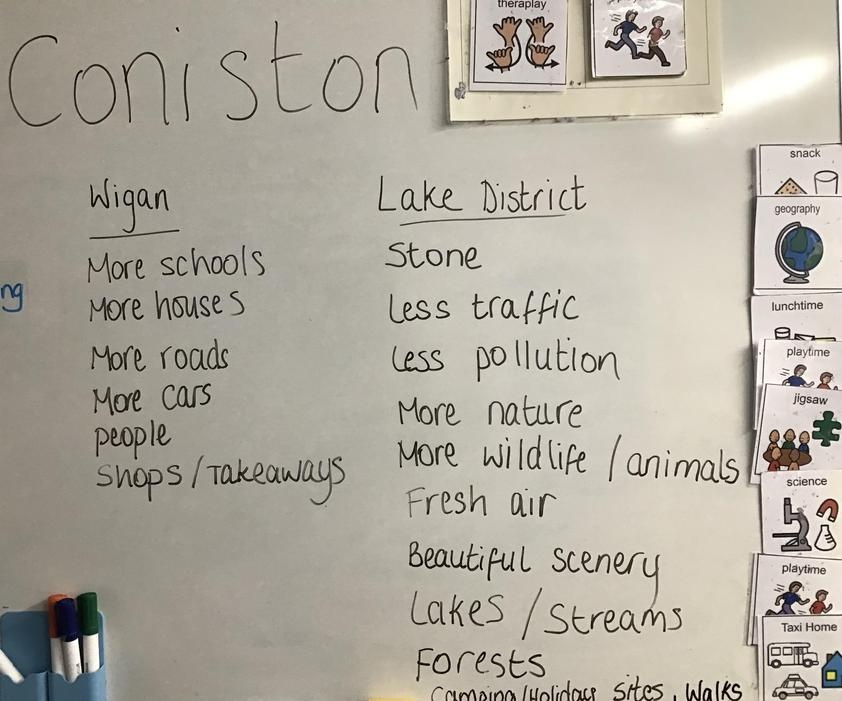 theraplay
Coniston
snack
geography
lunchtime
playtime
jigsaw
science
playtime
Taxi Home
ng
Wigan
More schools
More houses
More roads
More cars
people
Shops/Takeaways
Lake District
Stone
Less traffic
Less pollution
More nature
More wildlife/animals
Fresh air
Beautiful scenery
Lakes/Streams
Forests
Camping/Holiday sites, Walks